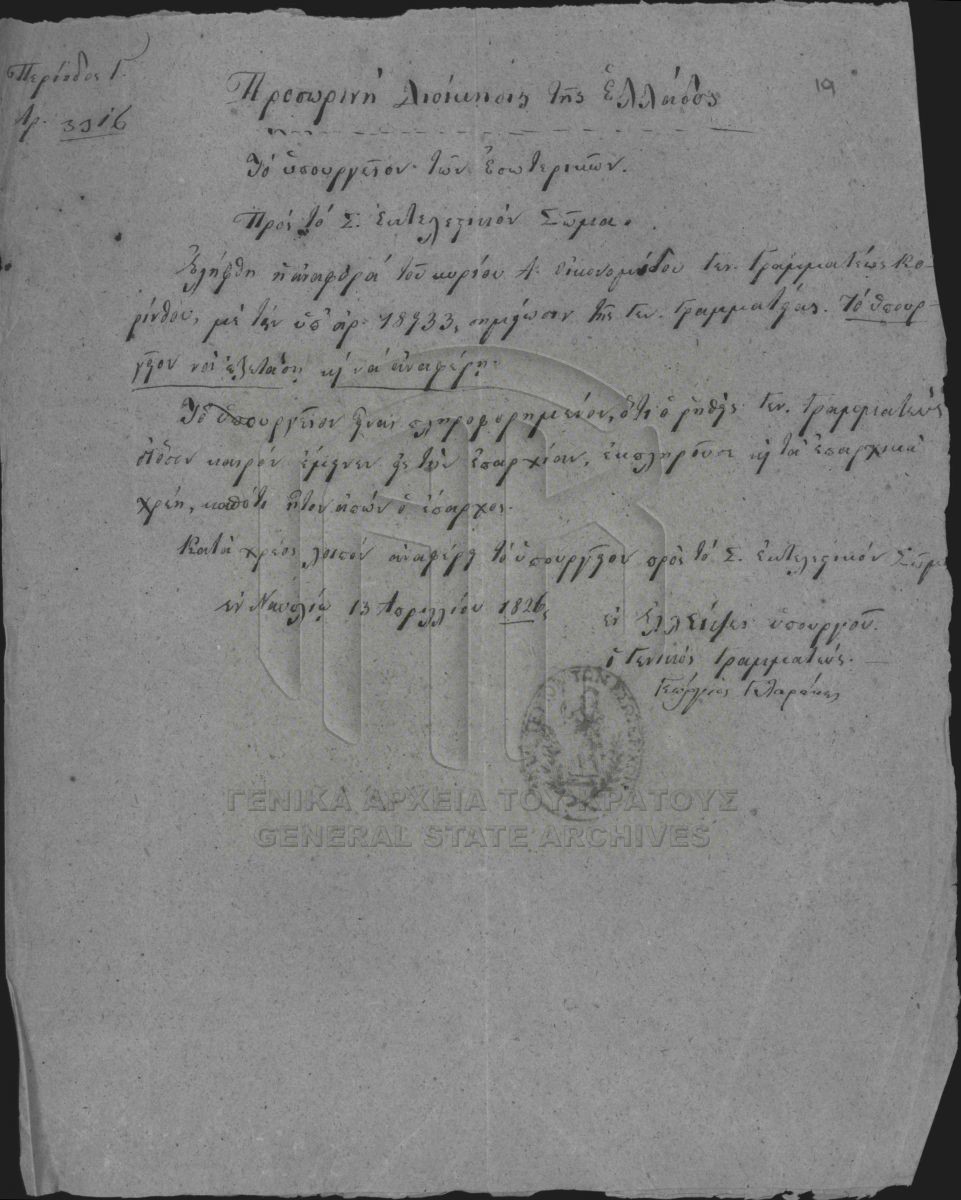 Περίοδος Γ.
Ἀρ. 3316
19
Προσωρινὴ Διοίκησις τῆς Ἑλλάδος
Τὸ ὑπουργεῖον τῶν Ἐσωτερικῶν.
Πρὸς τὸ Σ. Ἐκτελεστικὸν Σῶμα.
Ἐλήφθη ἡ ἀναφορὰ τοῦ κυρίου Α. Οἰκονομίδου Γεν. Γραμματέως Κο-
ρίνθου, μὲ τὴν ὑπ' ἀρ. 18933, σημείωσιν τῆς Γεν. Γραμματείας. Τὸ ὑπουρ-
γεῖον νὰ ἐξετάσῃ κὶ νὰ ἀναφέρῃ.
Τὸ ὑπουργεῖον εἶναι πληροφορημένον, ὅτι ὁ ῥηθεὶς Γεν. Γραμματεὺς
καιρὸν ἔμεινεν εἰς τὴν ἐπαρχίαν, ἐκπληροῦσε κὶ τὰ ἐπαρχικὰ
χρέη, καθότι ἦτον ἀπὼν ὁ ἔπαρχος.
Κατὰ χρέος λοιπὸν ἀναφέρει τὸ ὑπουργεῖον πρὸς τὸ Σ. Ἐκτελεστικὸν Σῶμα
ἐν Ναυπλίῳ 13 Ἀπριλλίου 1826,
ἐν Ἐλλείψει ὑπουργοῦ.
ὁ Γενικὸς Γραμματεύς.
Γεώργιος Γλαράκης
ΓΕΝΙΚΑ ΑΡΧΕΙΑ ΤΟΥ ΚΡΑΤΟΥΣ
GENERAL STATE ARCHIVES